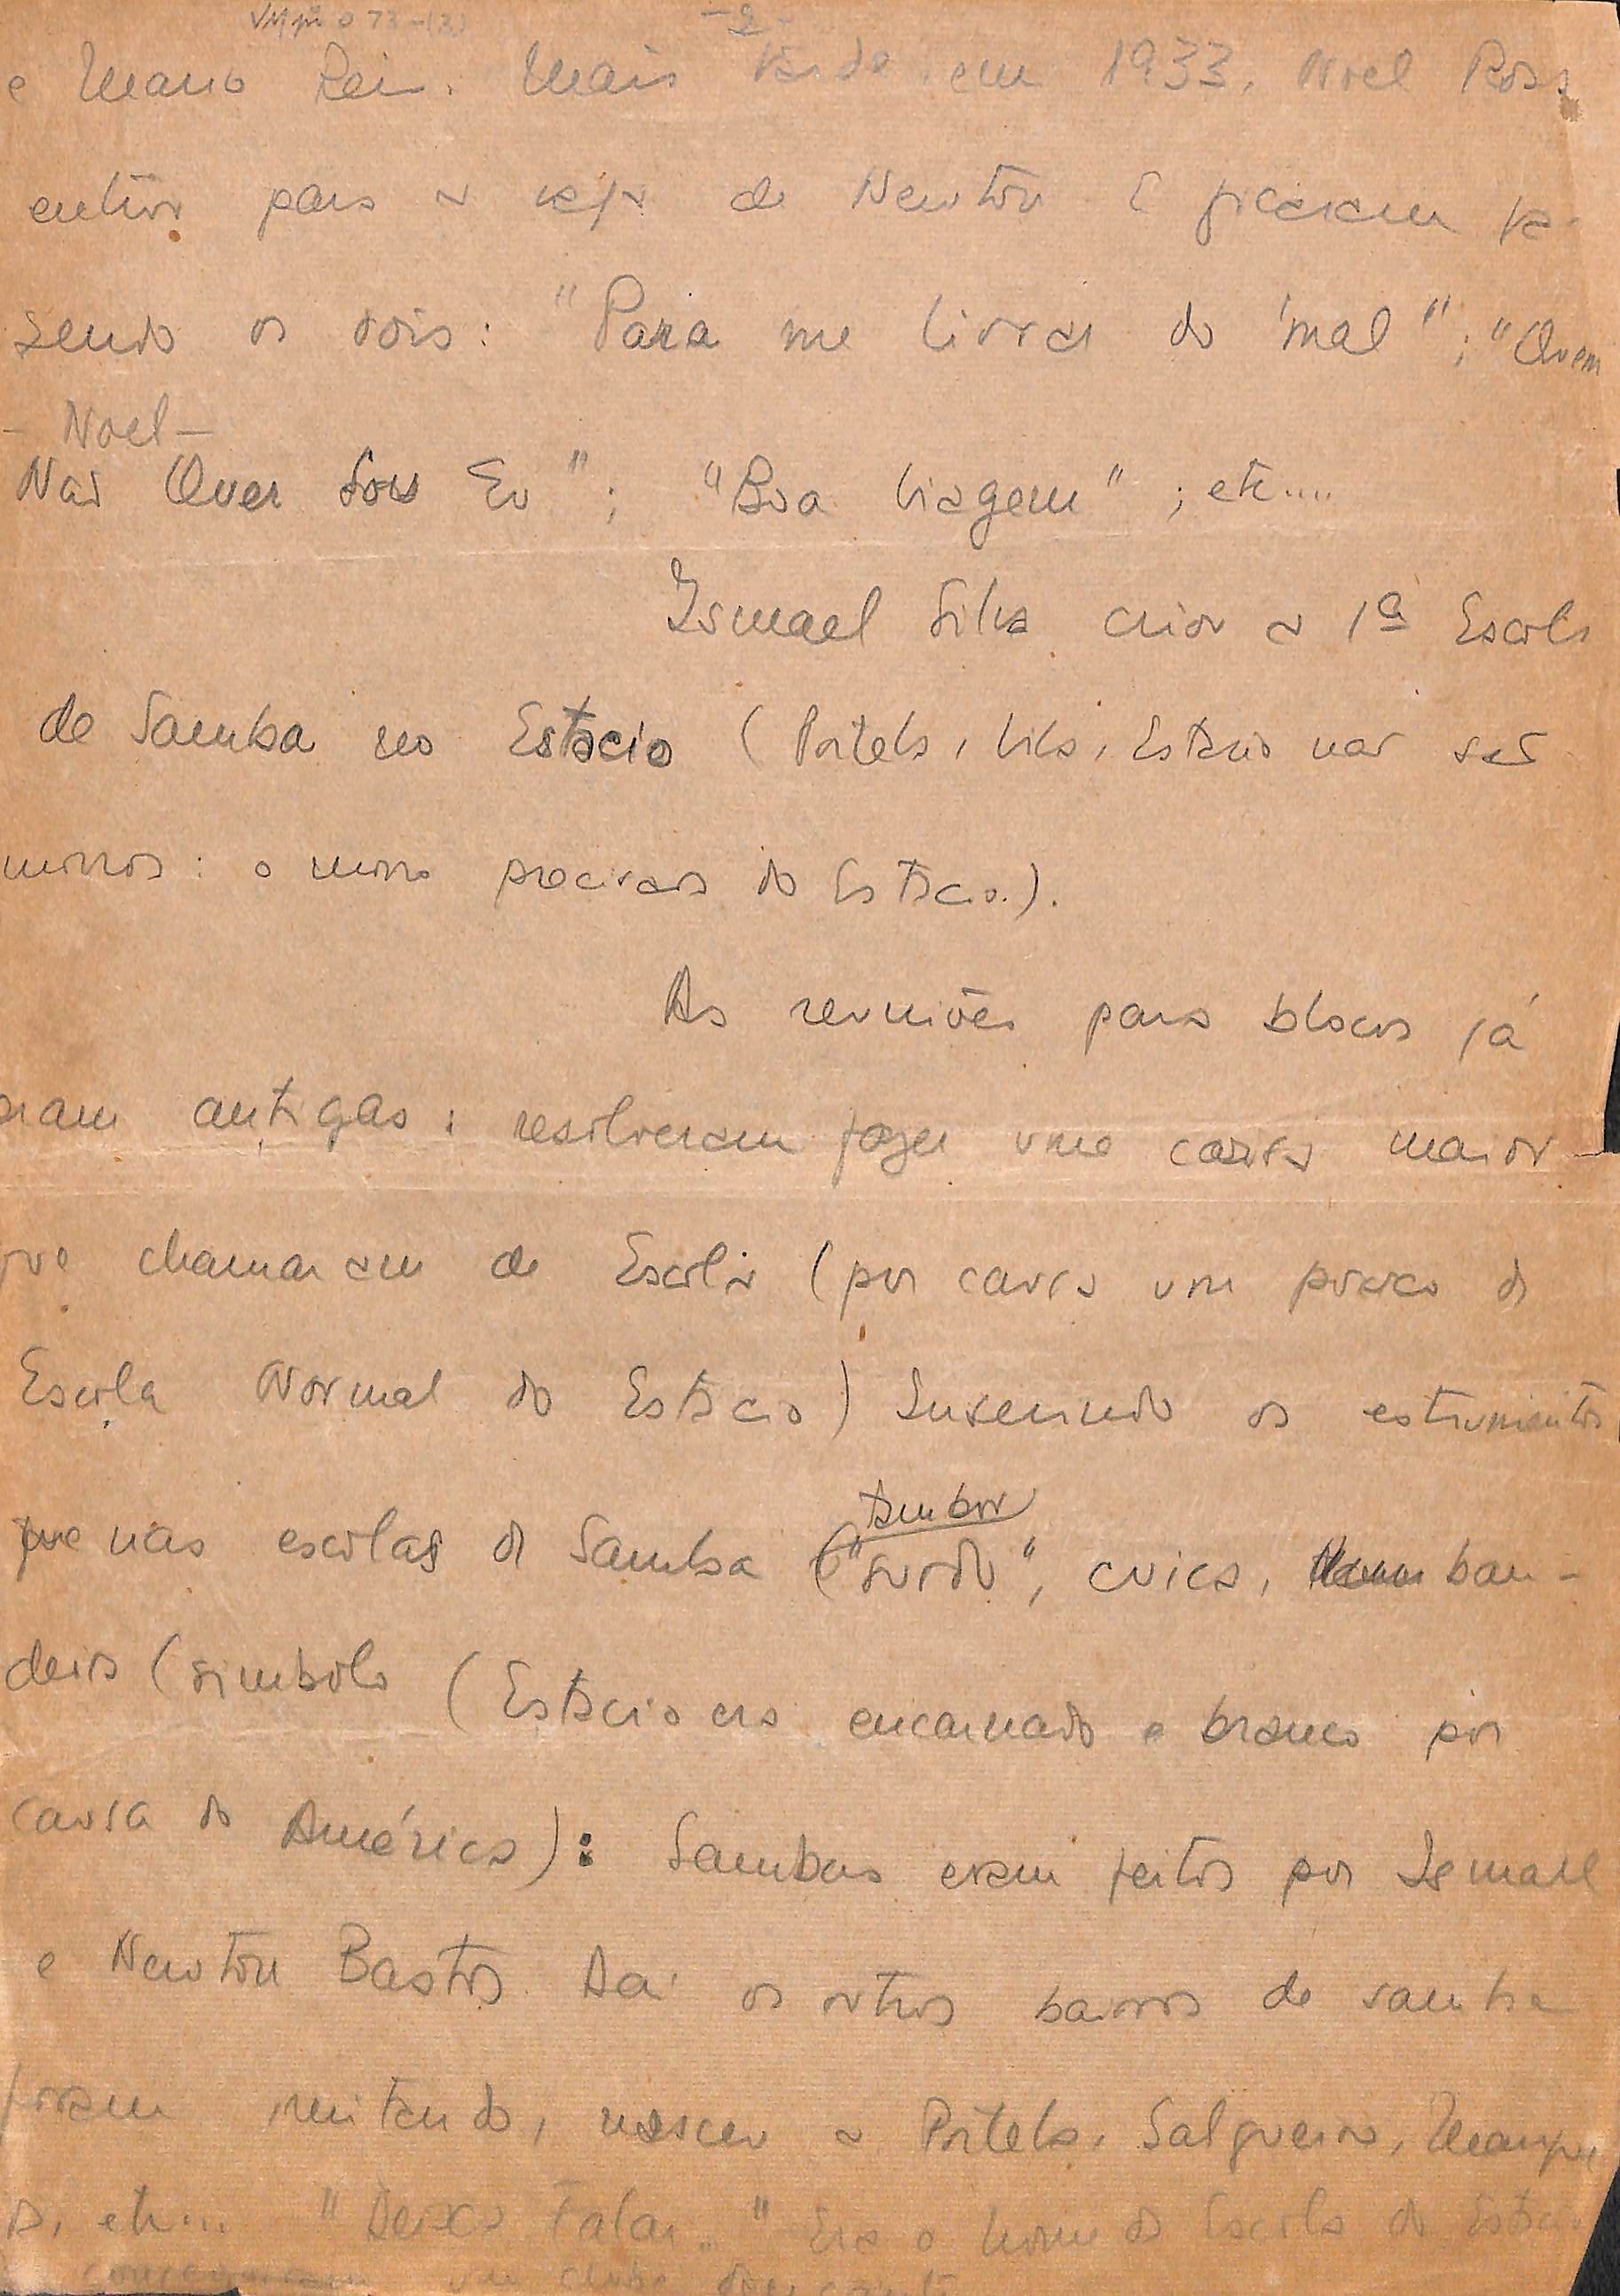 - 2 -
e Mario Reis. Mais tarde, em 1933, Noel Rosa
entrou para a vaga de Newton e ficaram fa-
zendo os dois: "Para me livrar do mal"; "Quem
- Noel -
Não Quer Sou Eu"; "Boa viagem"; etc....
Ismael Silva criou a 1ª Escola
de Samba no Estacio (Portela, Vila, Estacio não são
morros: o morro precisava do Estacio.).
As reuniões para blocos já
eram antigas; resolveram fazer uma coisa maior
que chamaram de Escola (por causa um pouco da
Escola Normal do Estacio)
os estrumentos
que nas escolas de Samba
tambor
("surdo", cuica, ban-
deira (simbolo (Estacio era encarnado e branco por
causa do América): Sambas eram feitos por Ismael
e Newton Bastos. Daí os outros bairros de samba
foram imitando, nasceu a Portela, Salgueiro, Manguei
ra, etc... "Deixa Falar.." Era o nome da Escola do Estacio.